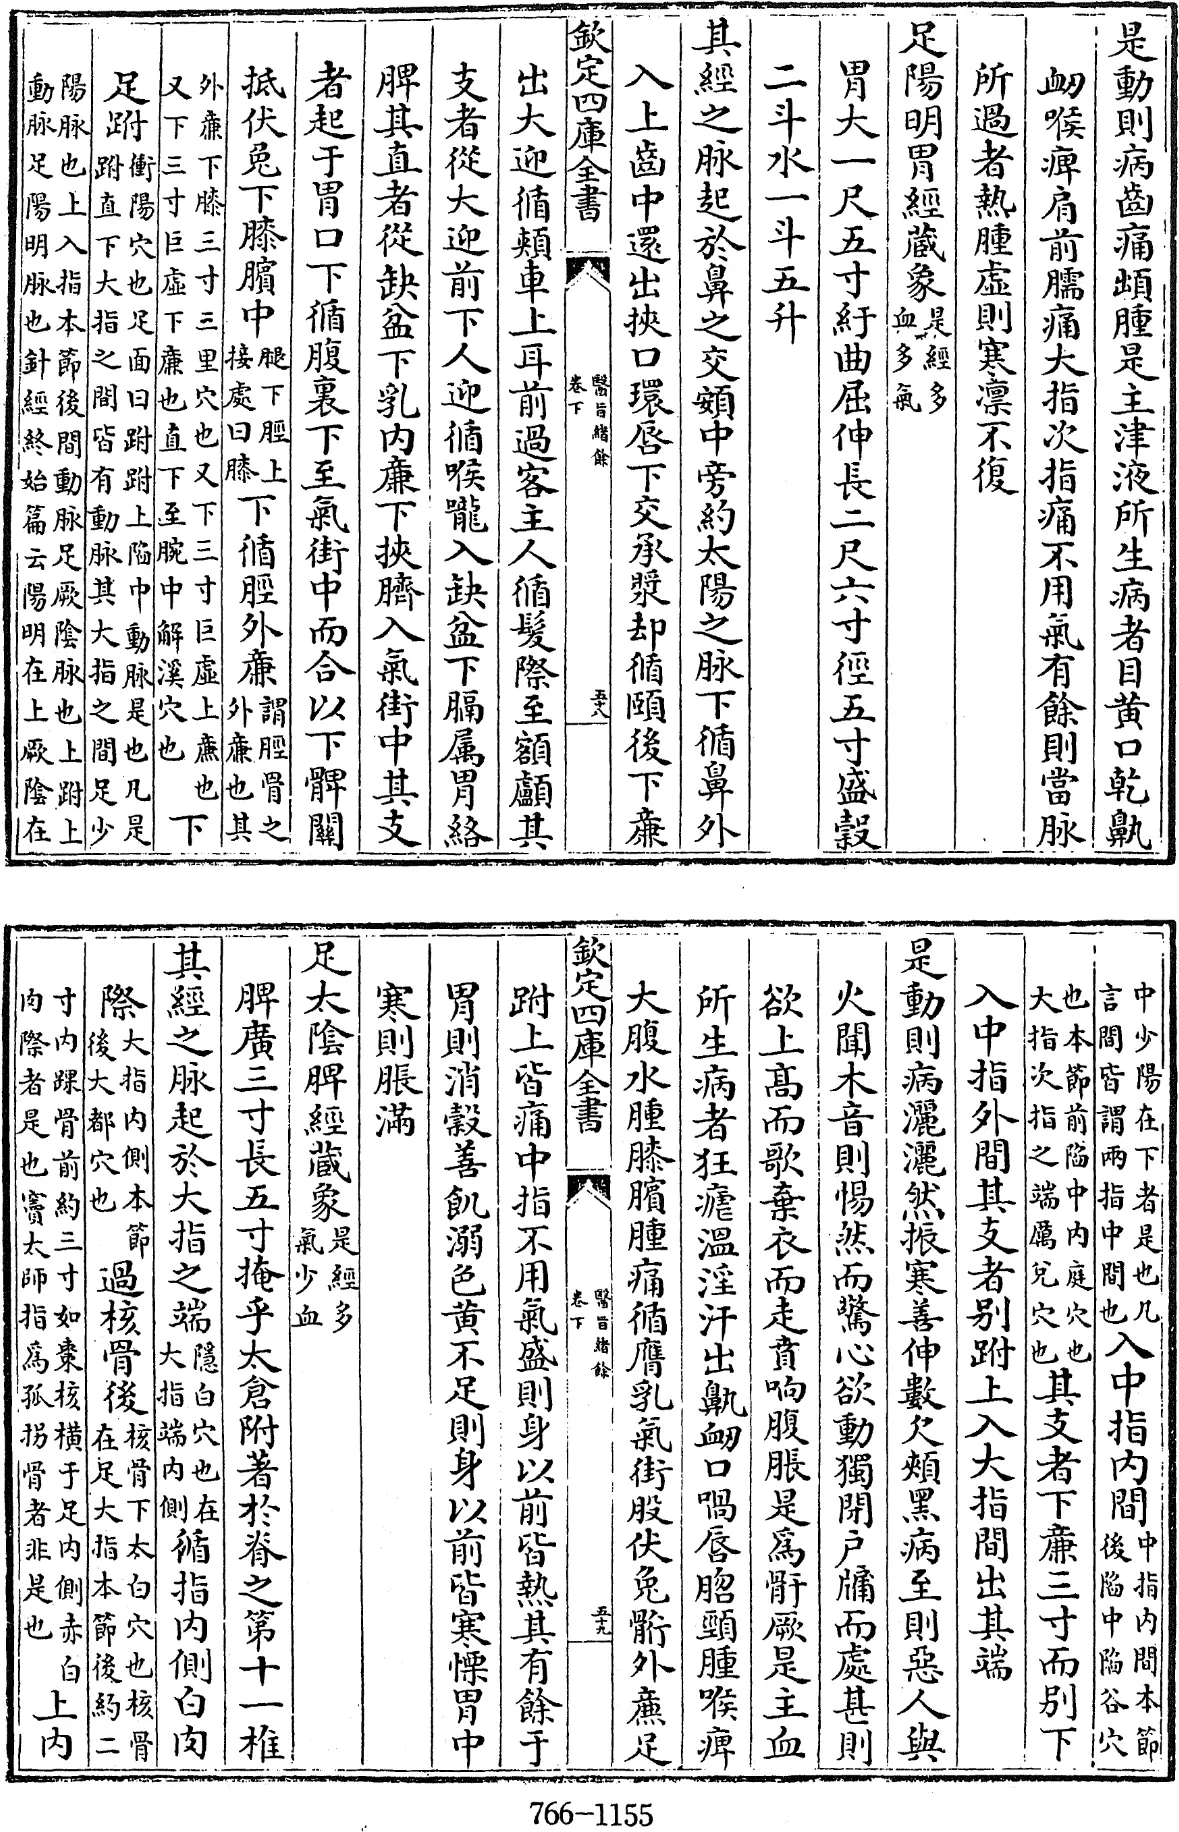 是動則病齒痛䪼腫是主津液所生病者目黄口乾鼽
衂喉痺肩前臑痛大指次指痛不用氣有餘則當脉
所過者熱腫虛則寒凛不復
足陽明胃經蔵象是經多血多氣
胃大一尺五寸紆曲屈伸長二尺六寸徑五寸盛穀
二斗水一斗五升
其經之脉起於鼻之交頞中旁約太陽之脉下循鼻外
入上齒中還出挾口環唇下交承漿却循頤後下亷
欽定四庫全書
醫旨緒餘
卷下
五十八
出大迎循頰車上耳前過客主人循髮際至額顱其
支者從大迎前下人迎循喉嚨入缺盆下膈属胃絡
脾其直者從缺盆下乳内亷下挾臍入氣街中其支
者起于胃口下循腹裏下至氣街中而合以下髀關
抵伏兔下膝臏中腿下脛上接處曰膝下循脛外亷謂脛骨之外亷也其
外亷下膝三寸三里穴也又下三寸巨虛上亷也又下三寸巨虛下亷也直下至腕中解溪穴也下
足跗衝陽穴也足面曰跗跗上陷中動脉是也凡是跗直下大指之間皆有動脉其大指之間足少
陽脉也上入指本節後間動脉足厥陰脉也上跗上動脉足陽明脉也針經終始篇云陽明在上厥陰在
中少陽在下者是也凡言間皆謂兩指中間也入中指内間中指内間本節後陷中陷谷穴
也本節前陷中内庭穴也大指次指之端厲兌穴也其支者下亷三寸而别下
入中指外間其支者别跗上入大指間出其端
是動則病灑灑然振寒善伸數欠頰黑病至則惡人與
火聞木音則惕然而驚心欲動獨閉户牖而處甚則
欲上髙而歌棄衣而走賁响腹脹是爲骭厥是主血
所生病者狂瘧溫淫汗出鼽衂口喎唇胗頸腫喉痺
大腹水腫膝臏腫痛循膺乳氣街股伏兔骭外亷足
欽定四庫全書
醫旨緒餘
卷下
五十九
跗上皆痛中指不用氣盛則身以前皆熱其有餘于
胃則消穀善飢溺色黄不足則身以前皆寒慄胃中
寒則脹滿
足太陰脾經蔵象是經多氣少血
脾廣三寸長五寸掩乎太倉附著於脊之第十一椎
其經之脉起於大指之端隱白穴也在大指端内側循指内側白肉
際大指内側本節後大都穴也過核骨後核骨下太白穴也核骨在足大指本節後約二
寸内踝骨前約三寸如棗核横于足内側赤白肉際者是也竇太師指爲孤拐骨者非是也上内
766-1155